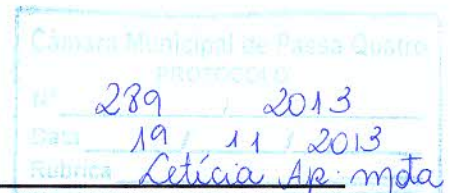 Câmara Municipal de Passa Quatro
PROTOCOLO
Nº 289 / 2013
Data 19 / 11 / 2013
Rubrica Letícia Ap. mota